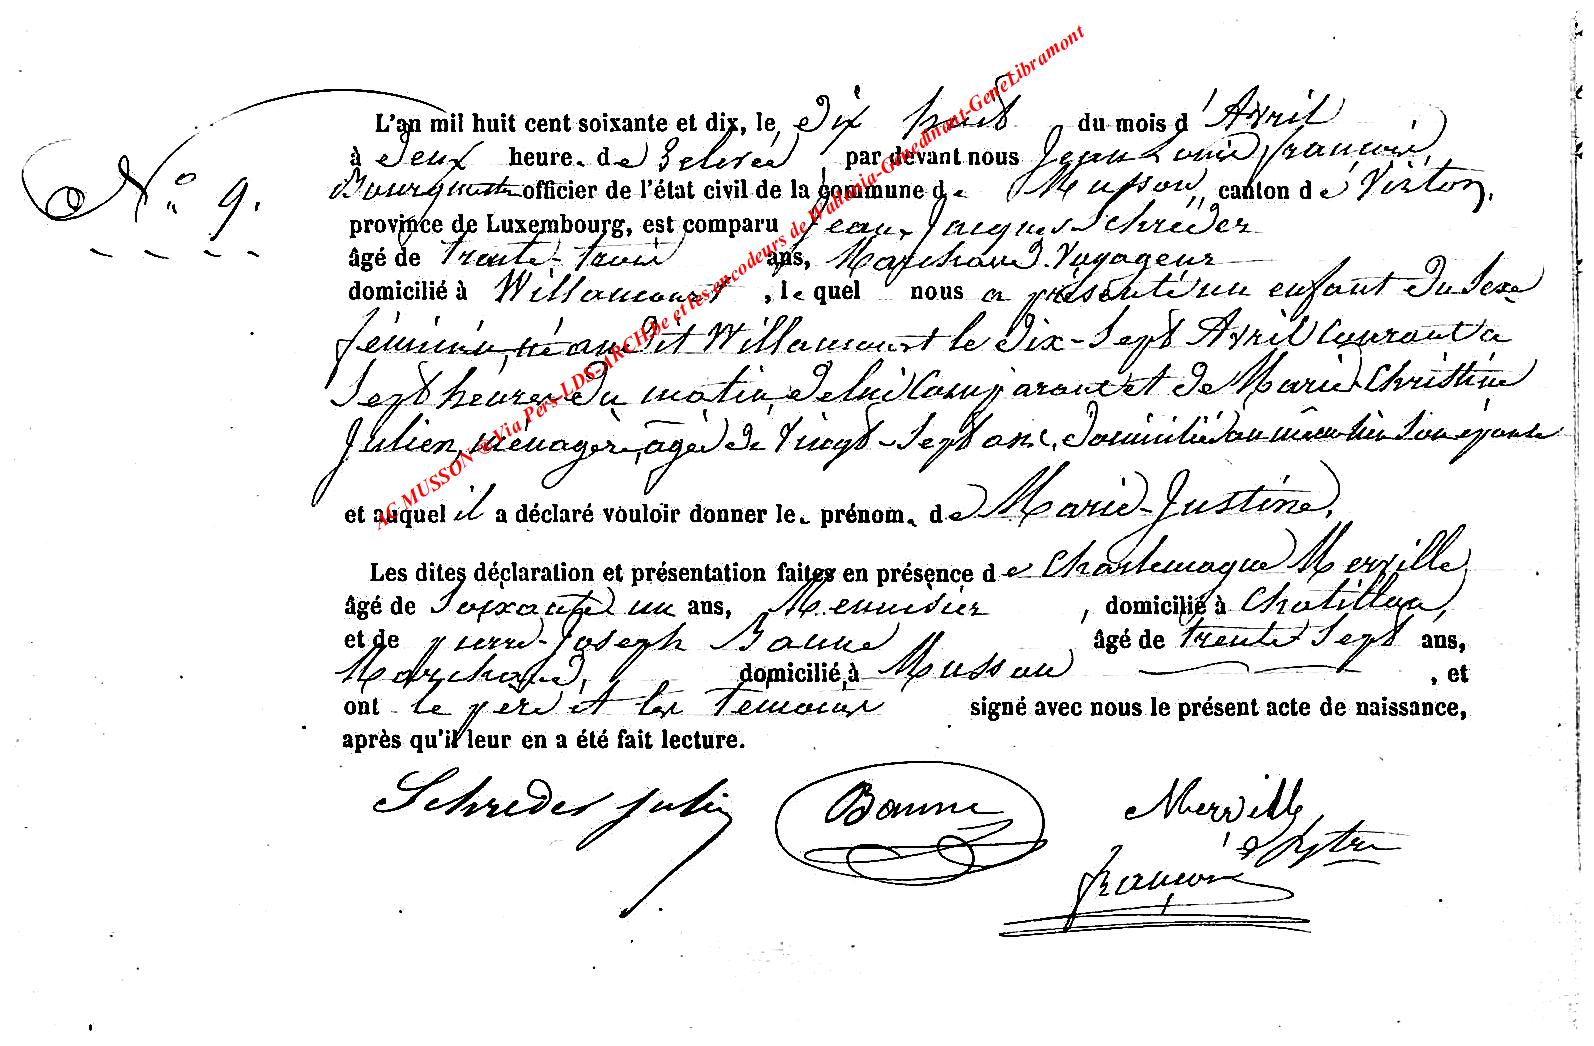 N° 9.
L'an mil huit cent soixante et dix, le Dix huit du mois d'Avril
à Deux heure. de Relevée par devant nous Jean Louis françois,
Bourgmestre officier de l'état civil de la commune de Musson, canton de Virton,
province de Luxembourg, est comparu Jean-Jacques Schréder
âgé de trente-trois ans, Marchand Voyageur
domicilié à Willancourt, le quel nous a présenté un enfant du Sexe
féminin, né au Dit Willancourt le Dix-Sept Avril Courant à
Sept heures du matin, de lui Comparant et de Marie Christine
Julien, ménagère, âgée de Vingt-Sept ans, domiciliée au même lieu Son épouse
et auquel il a déclaré vouloir donner le prénom. de Marie-Justine.
Les dites déclaration et présentation faites en présence de Charlemagne Merville
âgé de Soixante un ans, Menuisier, domicilié à Chatillon,
et de pierre-Joseph Baune âgé de trente Sept ans,
Marchand, domicilié à Musson, et
ont le père et les témoins signé avec nous le présent acte de naissance,
après qu'il leur en a été fait lecture.
Schreder Julien Baune Merville
françois
AC MUSSON @ Via Pers-LDS-ARCH.be et les encodeurs de Wallonia-Genedinant-GeneLibramont